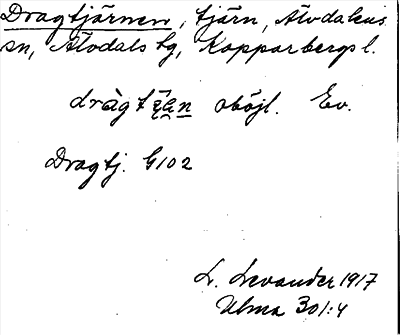 Dragtjärnen, tjärn, Älvdalens
sn, Älvdals tg, Kopparbergs l.
obōjl. Ev.
Dragtj. G102
L. Levander 1917
Ulma 301:4